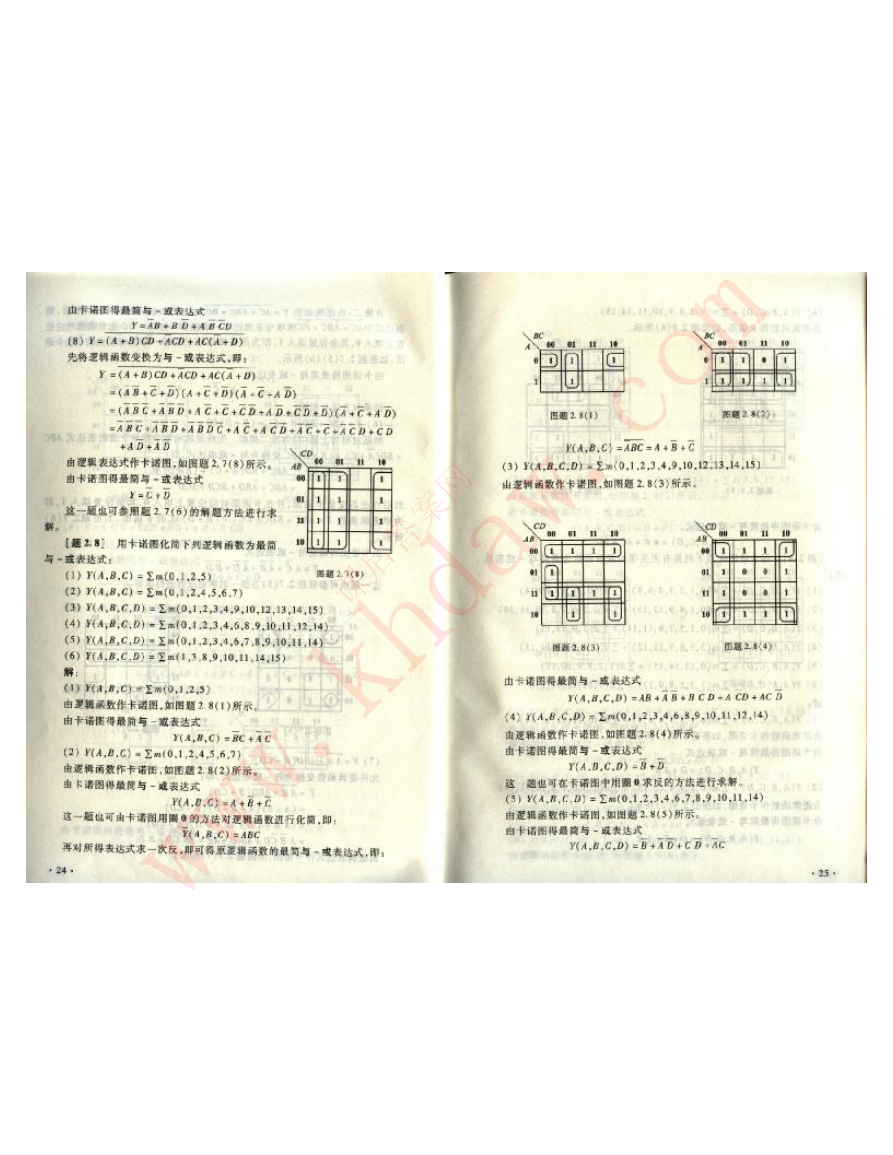 由卡诺图得最简与-或表达式
Y = A̅B + B̅ D̅ + A B̅ C̅D̅
(8) Y = (A+B)CD + A̅CD + AC(A̅+D)
先将逻辑函数变换为与-或表达式,即:
由逻辑表达式作卡诺图,如图题2.7(8)所示。
由卡诺图得最简与-或表达式
Y = C̅ + D̅
这一题也可参照题2.7(6)的解题方法进行求
解。
CD
AB 00 01 11 10
00 1 1 1
01 1 1 1
11 1 1 1
10 1 1 1
图题2.7(8)
[题2.8] 用卡诺图化简下列逻辑函数为最简
与-或表达式:
(1) Y(A,B,C) = ∑m(0,1,2,5)
(2) Y(A,B,C) = ∑m(0,1,2,4,5,6,7)
(3) Y(A,B,C,D) = ∑m(0,1,2,3,4,9,10,12,13,14,15)
(4) Y(A,B,C,D) = ∑m(0,1,2,3,4,6,8,9,10,11,12,14)
(5) Y(A,B,C,D) = ∑m(0,1,2,3,4,6,7,8,9,10,11,14)
(6) Y(A,B,C,D) = ∑m(1,3,8,9,10,11,14,15)
解:
(1) Y(A,B,C) = ∑m(0,1,2,5)
由逻辑函数作卡诺图,如图题2.8(1)所示。
由卡诺图得最简与-或表达式
Y(A,B,C) = B̅C + A̅ C̅
(2) Y(A,B,C) = ∑m(0,1,2,4,5,6,7)
由逻辑函数作卡诺图,如图题2.8(2)所示。
由卡诺图得最简与-或表达式
Y(A,B,C) = A + B̅ + C̅
这一题也可由卡诺图用圈0的方法对逻辑函数进行化简,即:
Y̅(A,B,C) = A̅BC
再对所得表达式求一次反,即可得原逻辑函数的最简与-或表达式,即:
· 24 ·
BC
A 00 01 11 10
0 1 1 1
1 1
图题2.8(1)
BC
A 00 01 11 10
0 1 1 0 1
1 1 1 1 1
图题2.8(2)
Y(A,B,C) = A̅BC = A + B̅ + C̅
(3) Y(A,B,C,D) = ∑m(0,1,2,3,4,9,10,12,13,14,15)
由逻辑函数作卡诺图,如图题2.8(3)所示。
CD
AB 00 01 11 10
00 1 1 1 1
01 1
11 1 1 1 1
10 1 1
图题2.8(3)
CD
AB 00 01 11 10
00 1 1 1 1
01 1 0 0 1
11 1 0 0 1
10 1 1 1 1
图题2.8(4)
由卡诺图得最简与-或表达式
Y(A,B,C,D) = AB + A̅ B̅ + B C̅ D̅ + A C̅D + AC D̅
(4) Y(A,B,C,D) = ∑m(0,1,2,3,4,6,8,9,10,11,12,14)
由逻辑函数作卡诺图,如图题2.8(4)所示。
由卡诺图得最简与-或表达式
Y(A,B,C,D) = B̅ + D̅
这一题也可在卡诺图中用圈0求反的方法进行求解。
(5) Y(A,B,C,D) = ∑m(0,1,2,3,4,6,7,8,9,10,11,14)
由逻辑函数作卡诺图,如图题2.8(5)所示。
由卡诺图得最简与-或表达式
Y(A,B,C,D) = B̅ + A̅ D̅ + C D̅ + A̅C
· 25 ·
课后答案网
www.khdaw.com